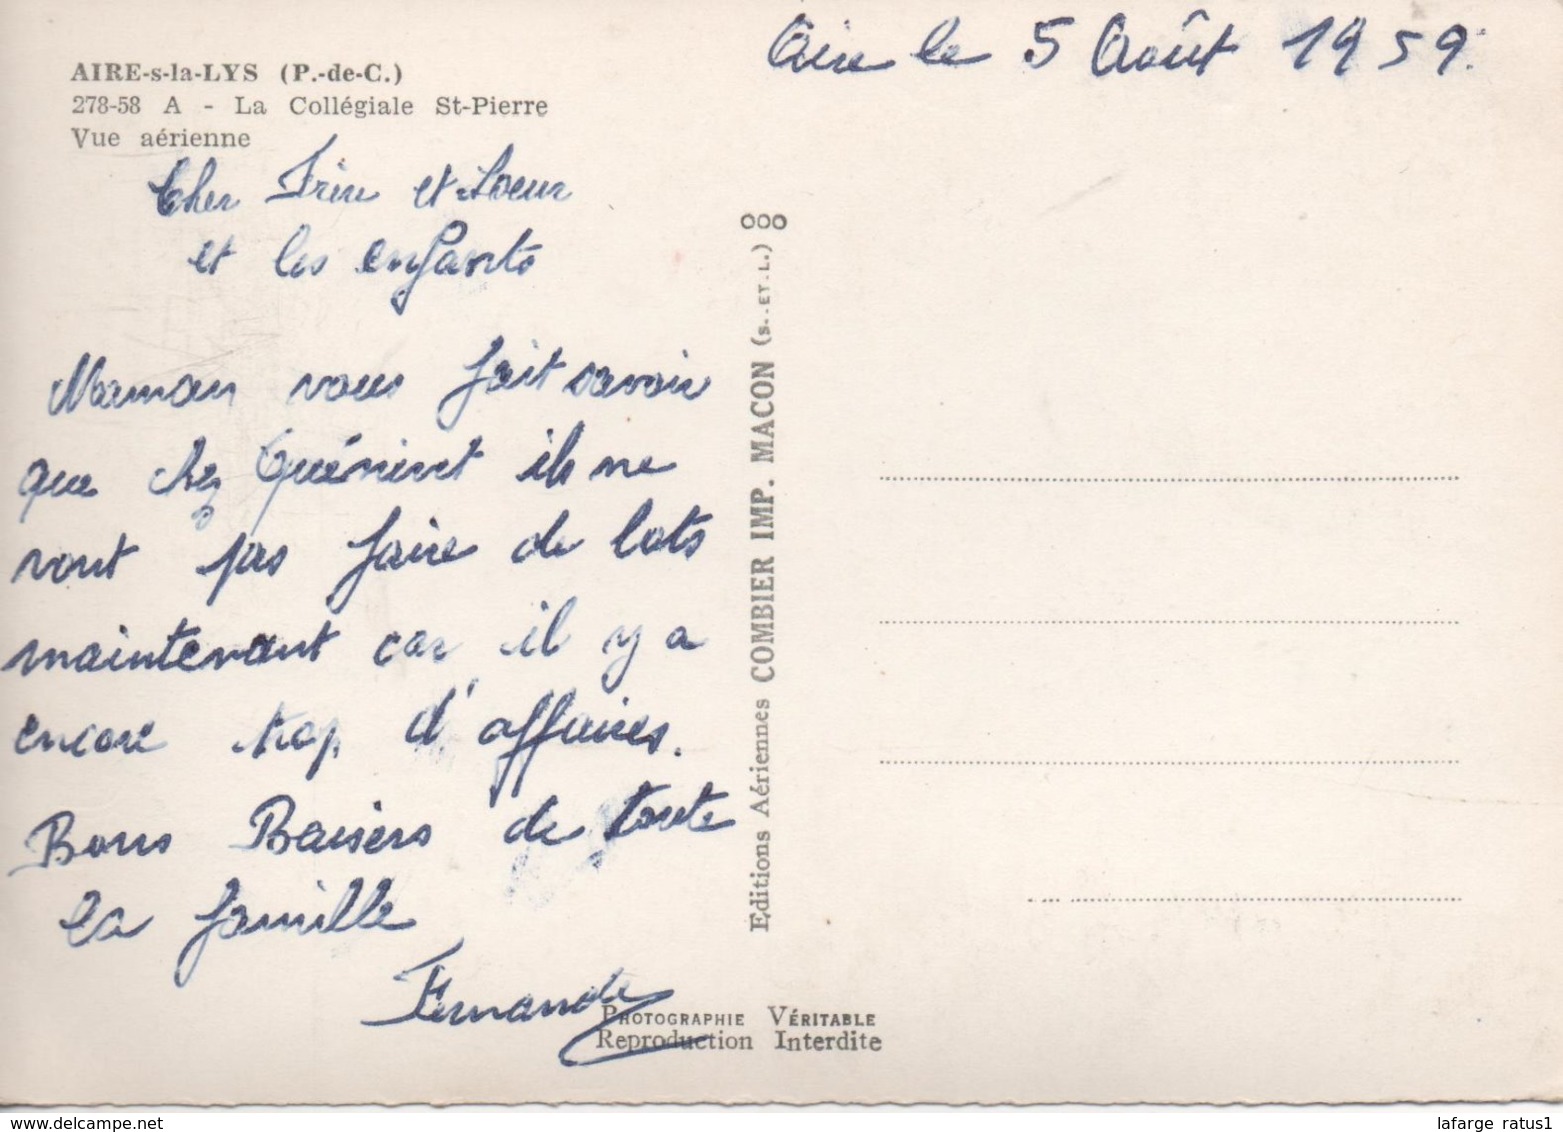 Aire le 5 Août 1959.
AIRE-s-la-LYS (P.-de-C.)
278-58 A - La Collégiale St-Pierre
Vue aérienne
Cher Frère et Soeur
et les enfants
Maman vous fait savoir
que chez ils ne
vont pas faire de lots
maintenant car il y a
encore trop d'affaires.
Bons Baisers de toute
la famille
Fernande
Editions Aériennes COMBIER IMP. MACON (S.-ET-L.)
PHOTOGRAPHIE VÉRITABLE
Reproduction Interdite
lafarge ratus1